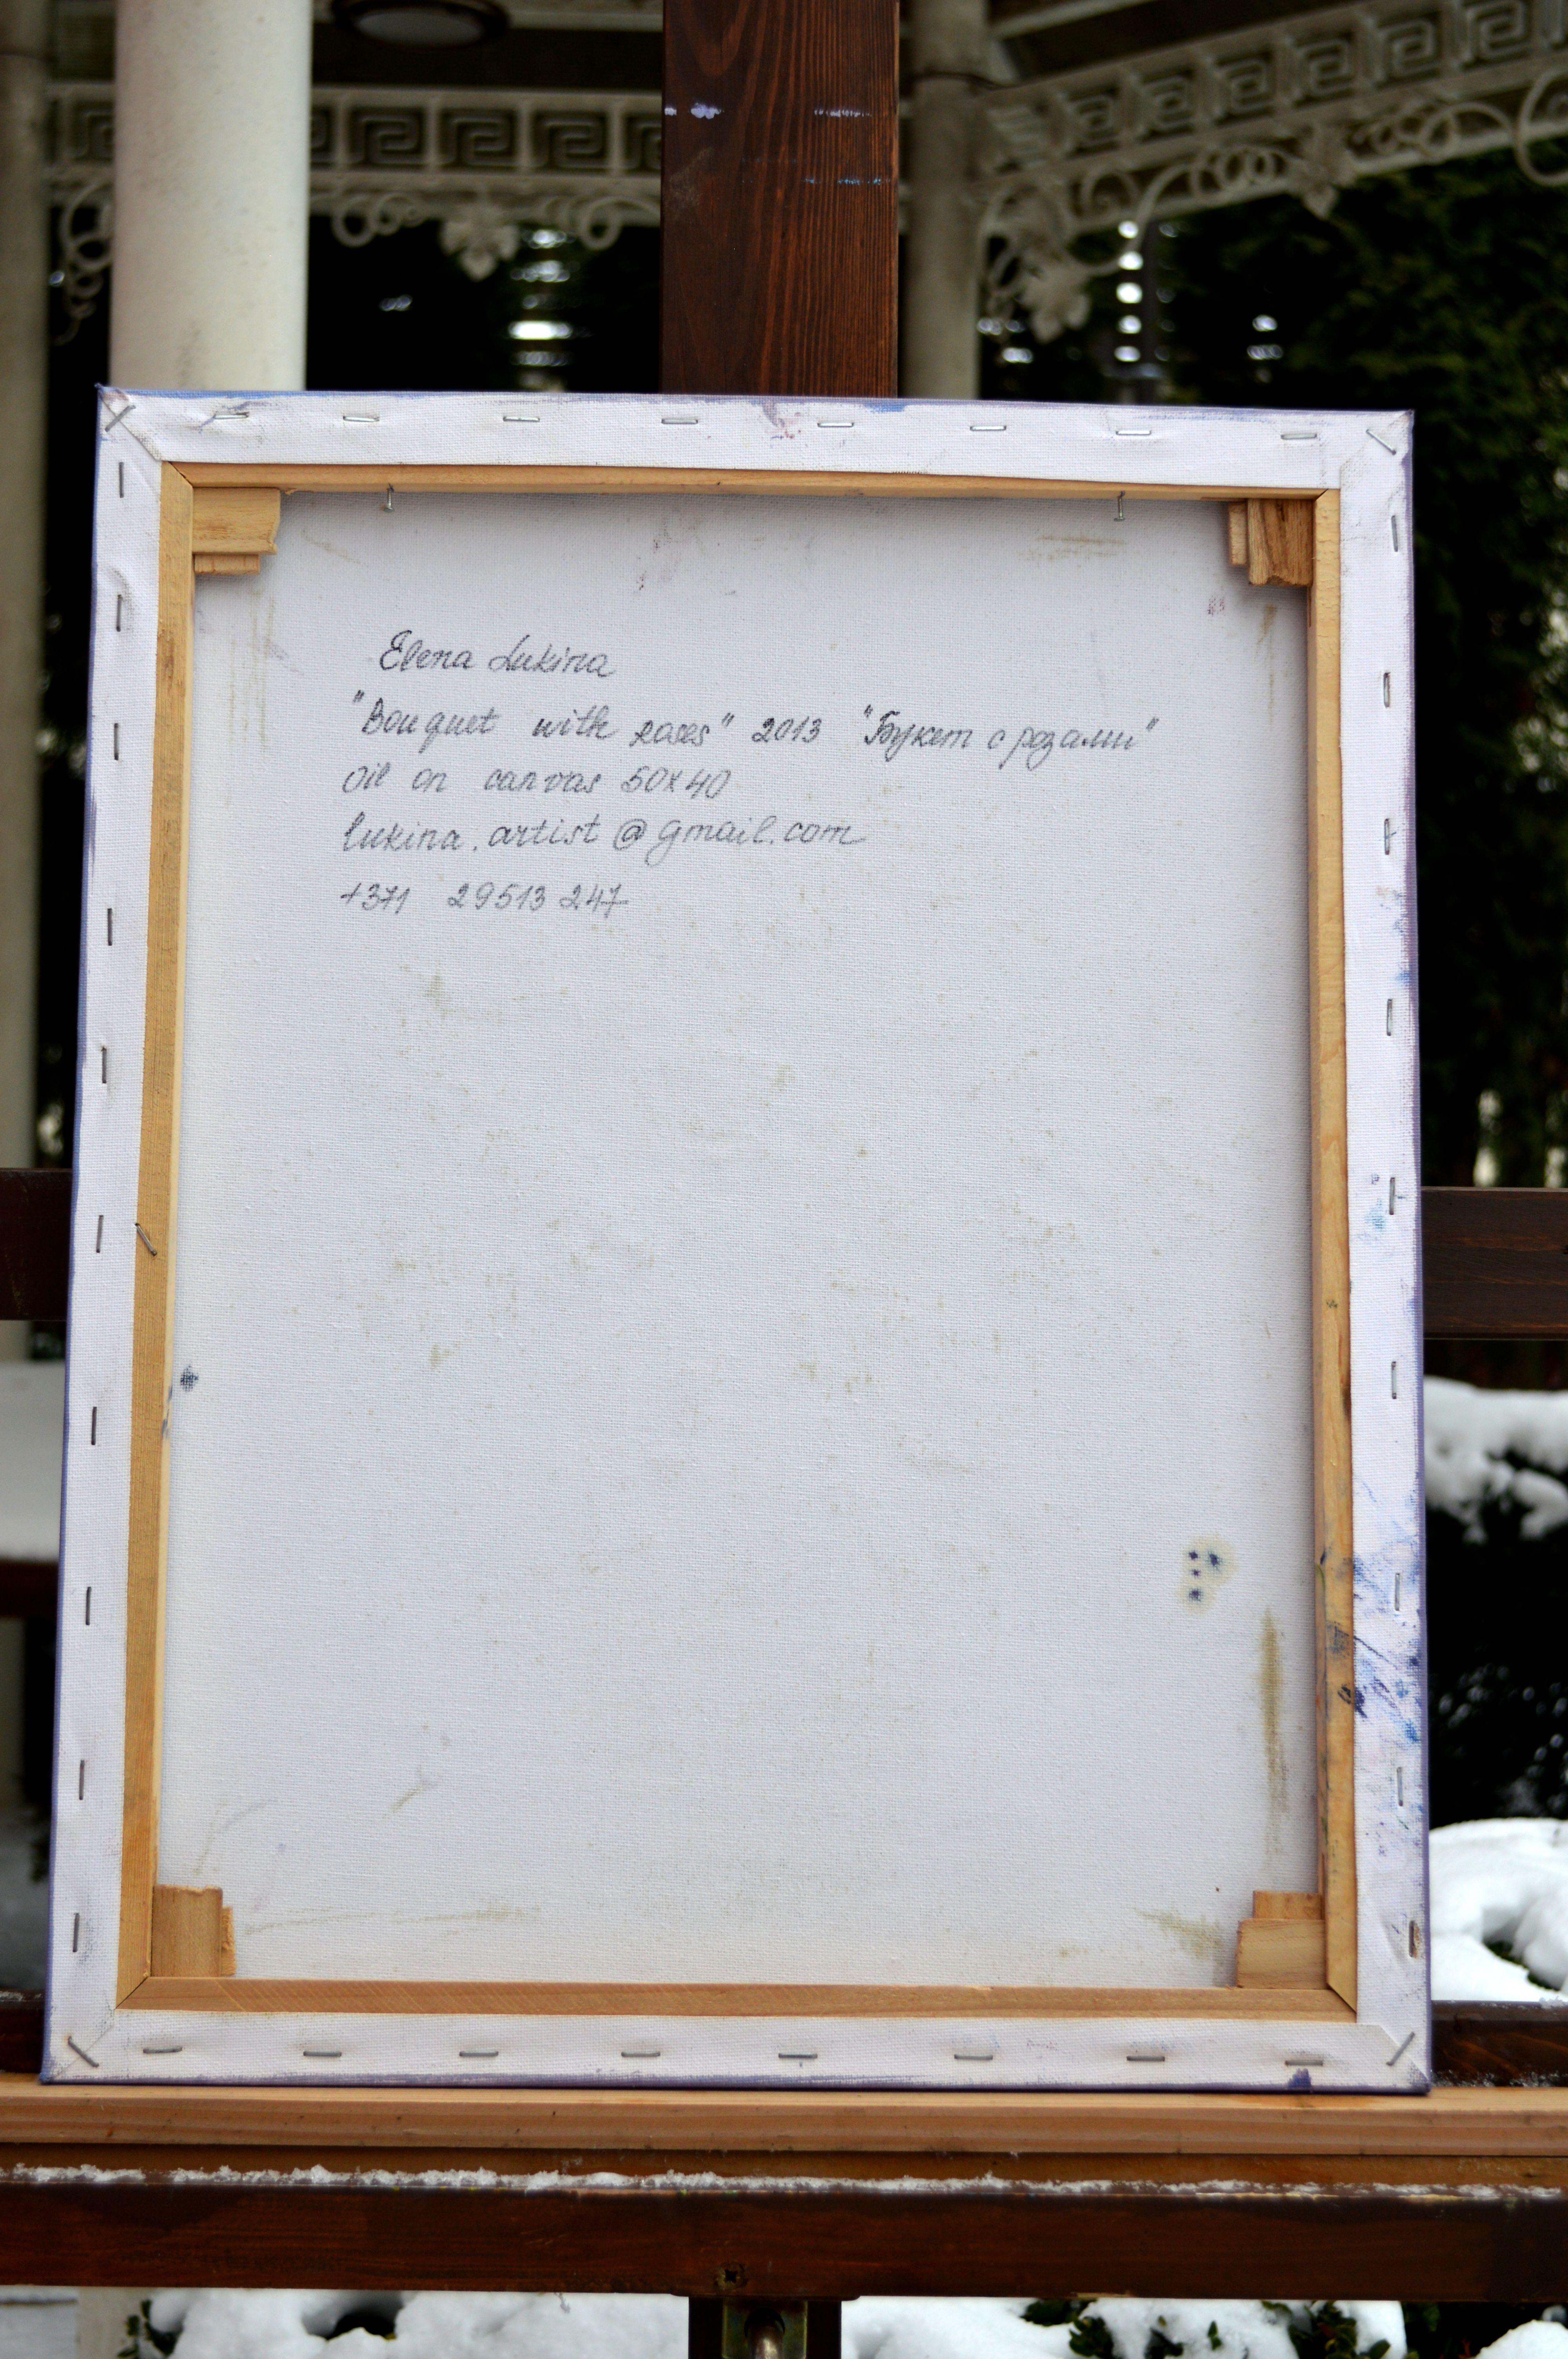 Elena Lukina
"Bouquet with roses" 2013 "Букет с розами"
Oil on canvas 50x40
lukina.artist@gmail.com
+371 29513 247